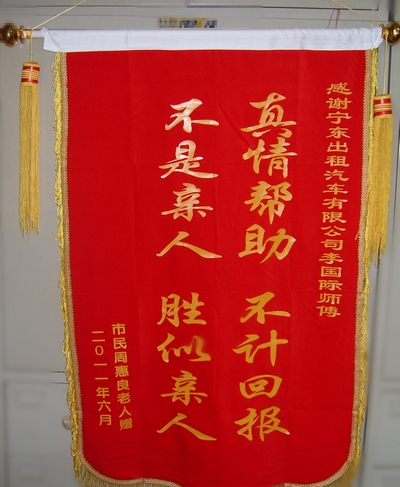 感谢宁东出租汽车有限公司李国际师傅
真情帮助 不计回报
不是亲人 胜似亲人
市民周惠良老人赠
二〇一一年六月